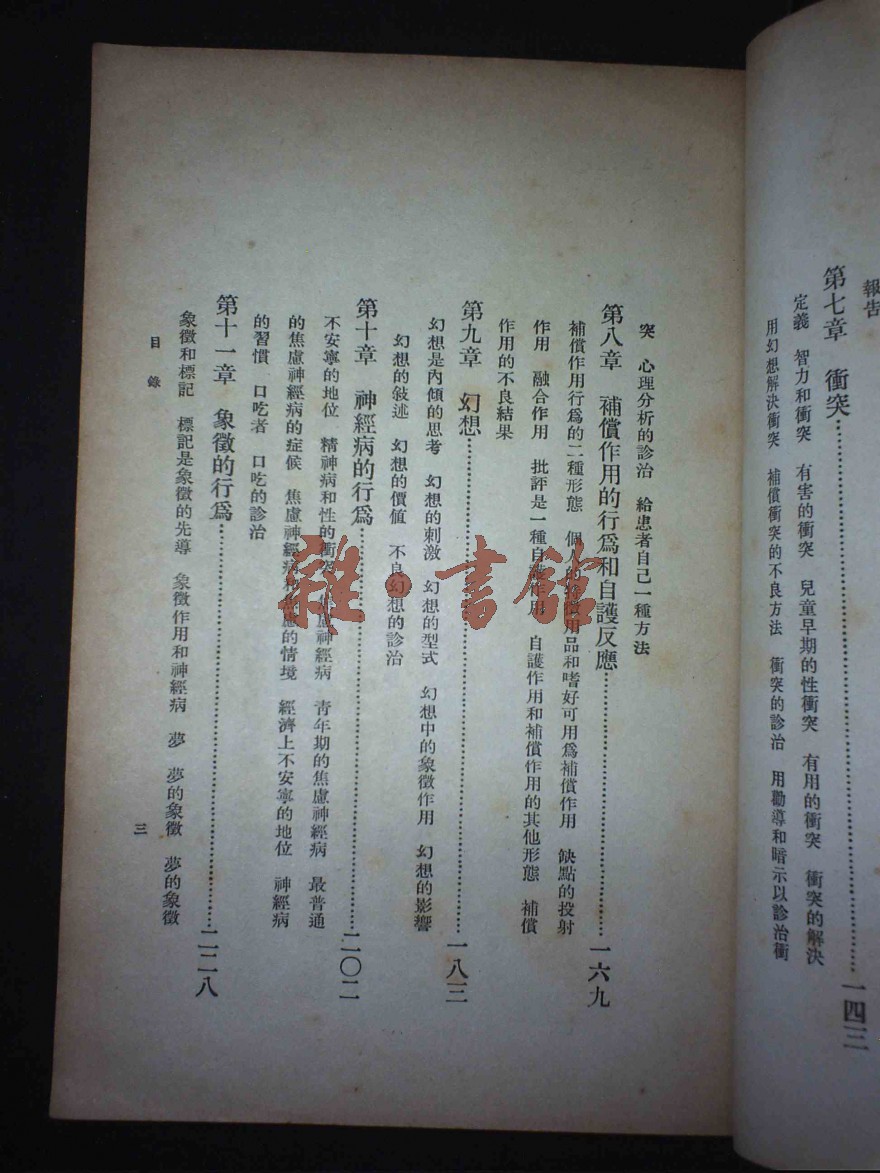 報告
第七章　衝突……一四三
定義　智力和衝突　有害的衝突　兒童早期的性衝突　有用的衝突　衝突的解決
用幻想解決衝突　補償衝突的不良方法　衝突的診治　用勸導和暗示以診治衝
突　心理分析的診治　給患者自己一種方法
第八章　補償作用的行爲和自護反應……一六九
補償作用行爲的二種形態　個人的特徵用品和嗜好可用爲補償作用　缺點的投射
作用　融合作用　批評是一種自護作用　自護作用和補償作用的其他形態　補償
作用的不良結果
第九章　幻想……一八三
幻想是內傾的思考　幻想的刺激　幻想的型式　幻想中的象徵作用　幻想的影響
幻想的敍述　幻想的價値　不良幻想的診治
第十章　神經病的行爲……二〇二
不安寧的地位　精神病和性的衝突　焦慮神經病　青年期的焦慮神經病　最普通
的焦慮神經病的症候　焦慮神經病和焦慮的情境　經濟上不安寧的地位　神經病
的習慣　口吃者　口吃的診治
第十一章　象徵的行爲……二二八
象徵和標記　標記是象徵的先導　象徵作用和神經病　夢　夢的象徵　夢的象徵
目錄
三
雜·書館